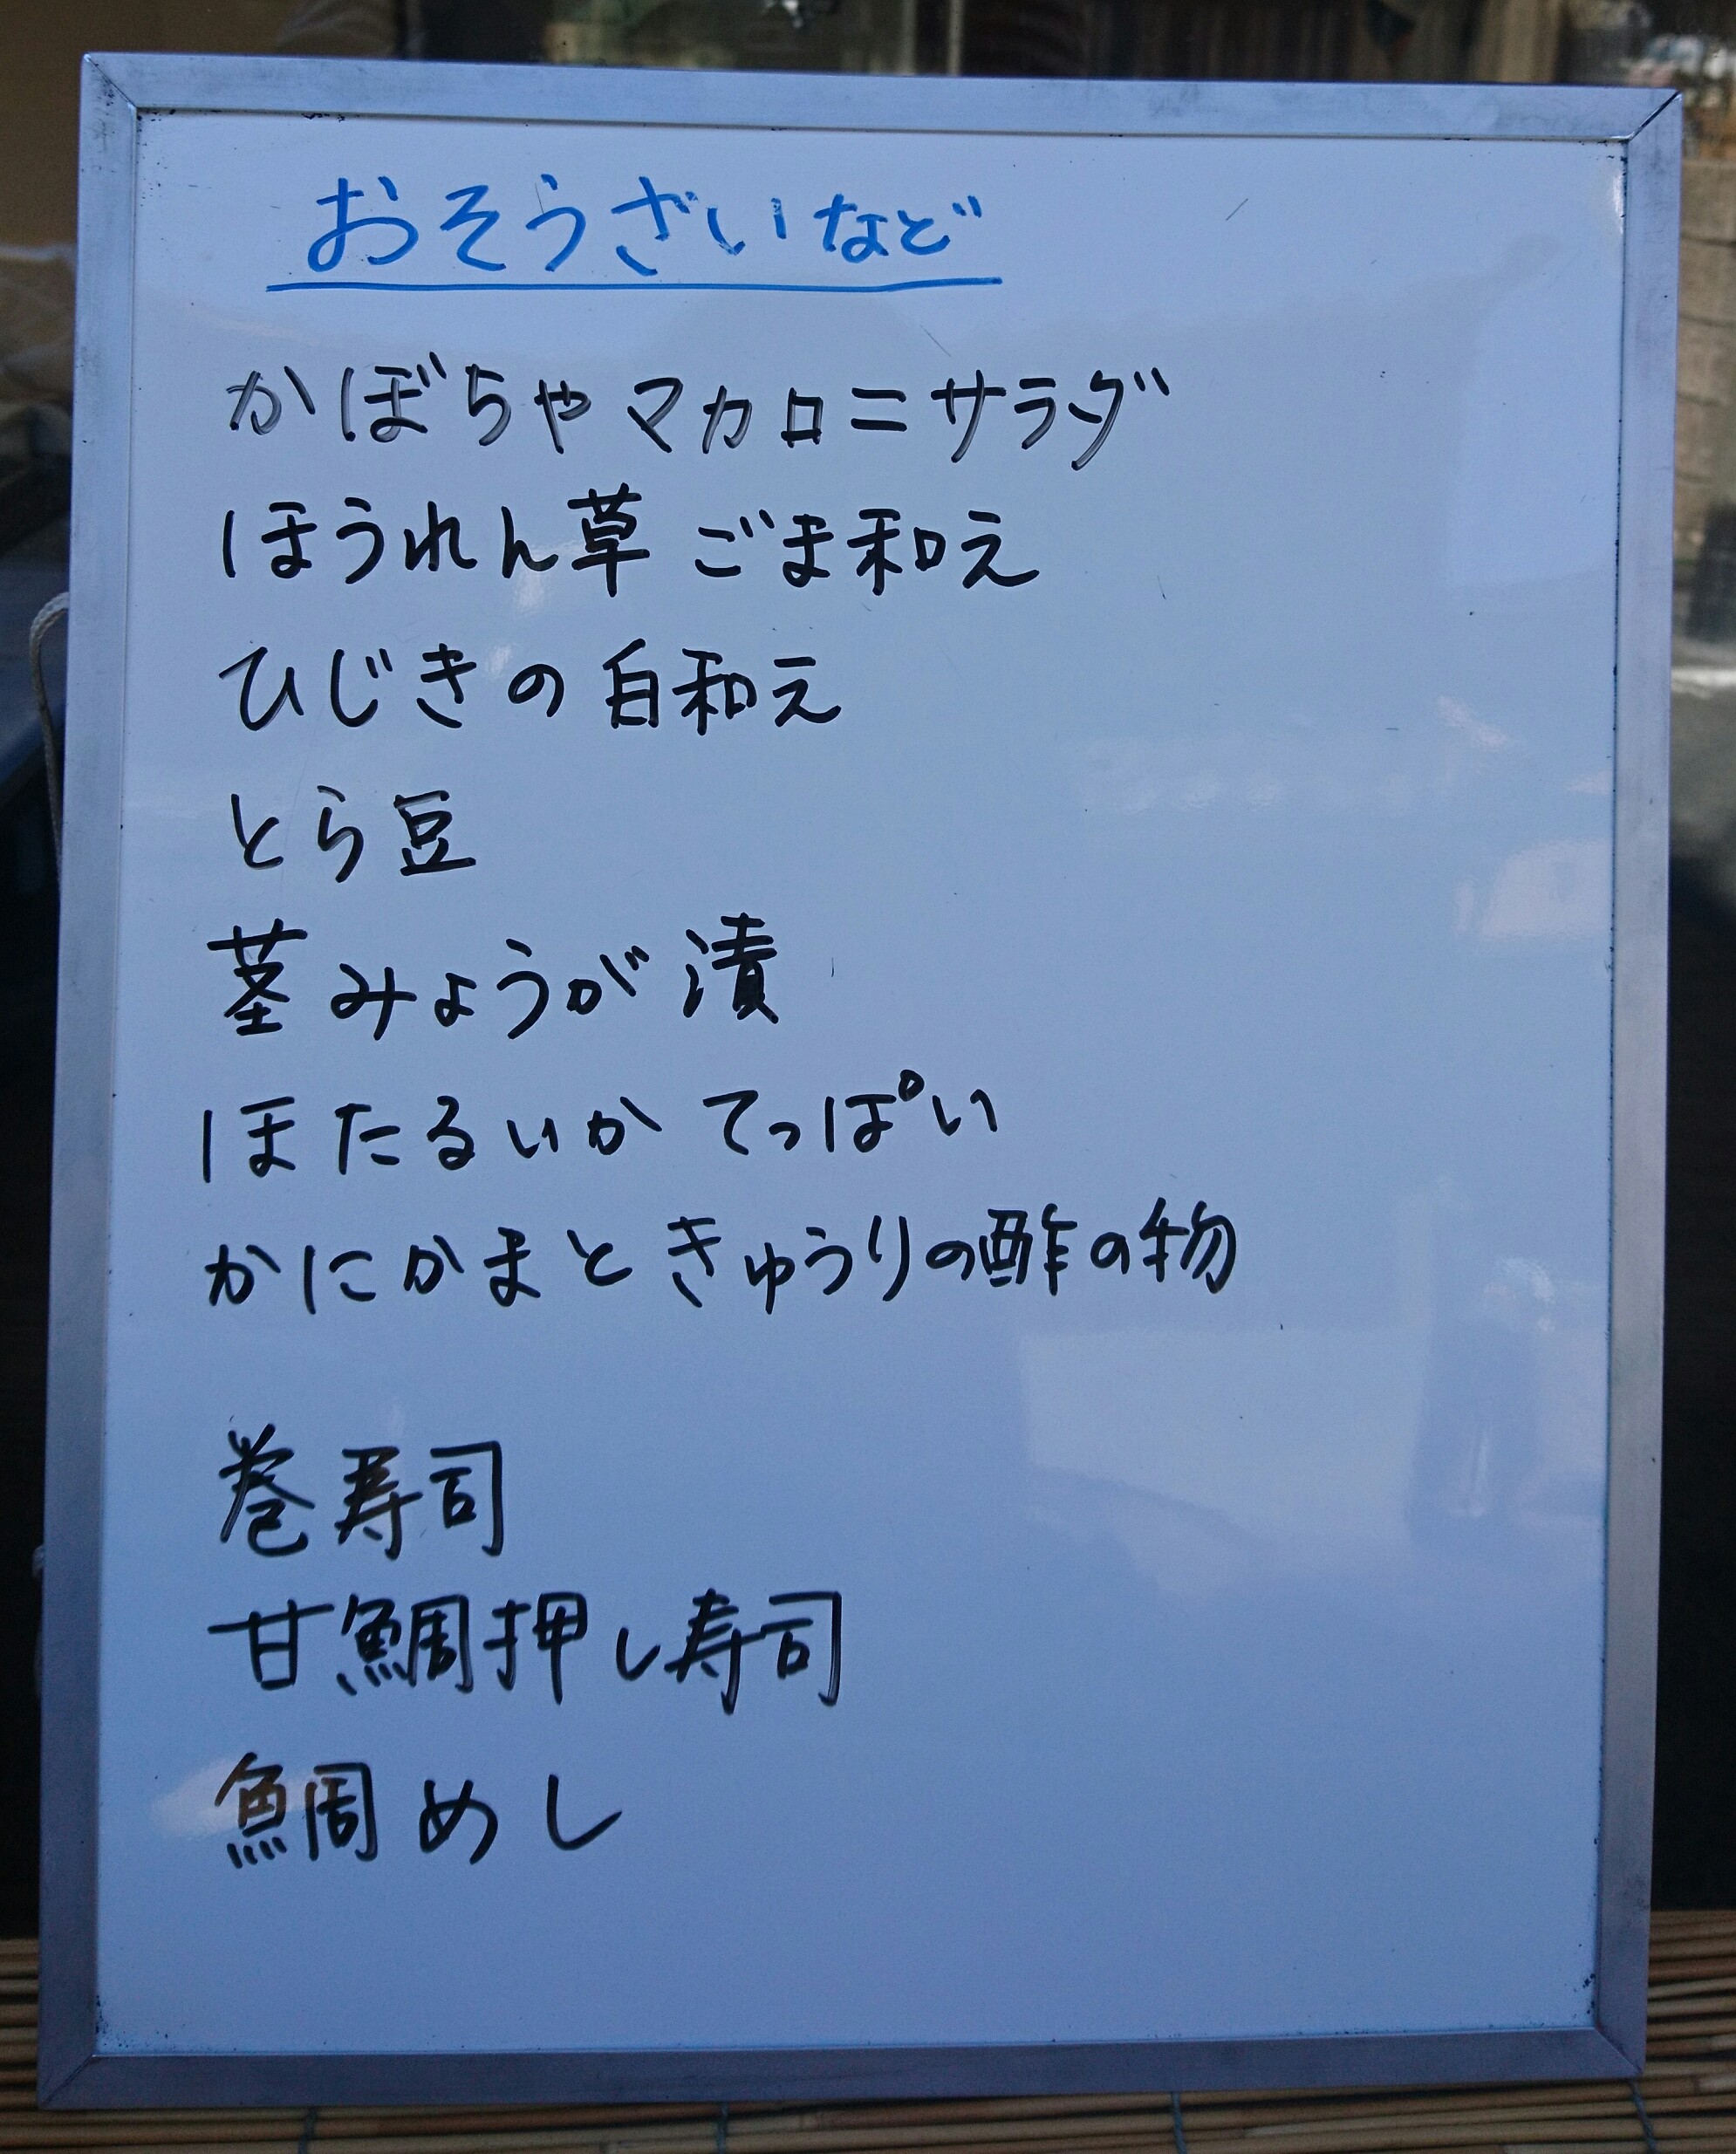 おそうざいなど
かぼちゃマカロニサラダ
ほうれん草 ごま和え
ひじきの白和え
とら豆
茎みょうが漬
ほたるいか てっぽい
かにかまときゅうりの酢の物
巻寿司
甘鯛押し寿司
鯛めし